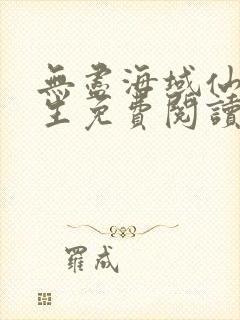 無盡海域仙
主免費閱讀
羅成